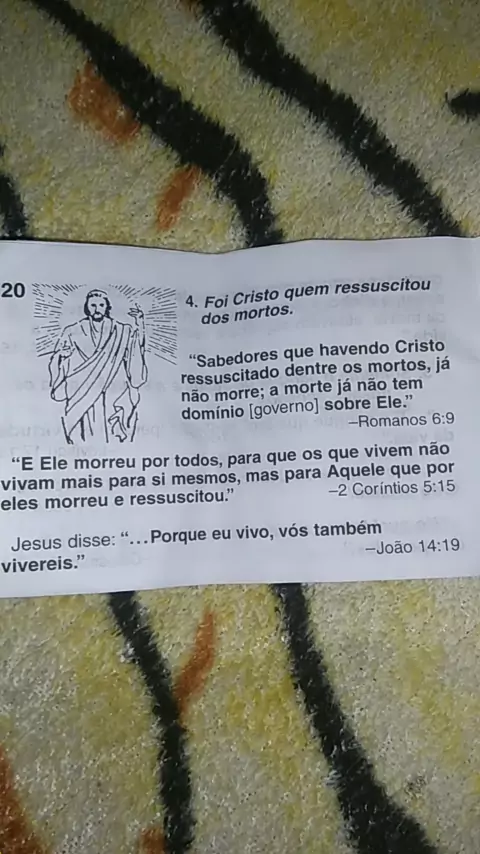 20
4. Foi Cristo quem ressuscitou
dos mortos.
“Sabedores que havendo Cristo
ressuscitado dentre os mortos, já
não morre; a morte já não tem
domínio [governo] sobre Ele.”
–Romanos 6:9
“E Ele morreu por todos, para que os que vivem não
vivam mais para si mesmos, mas para Aquele que por
eles morreu e ressuscitou.” –2 Coríntios 5:15
Jesus disse: “...Porque eu vivo, vós também
vivereis.” –João 14:19